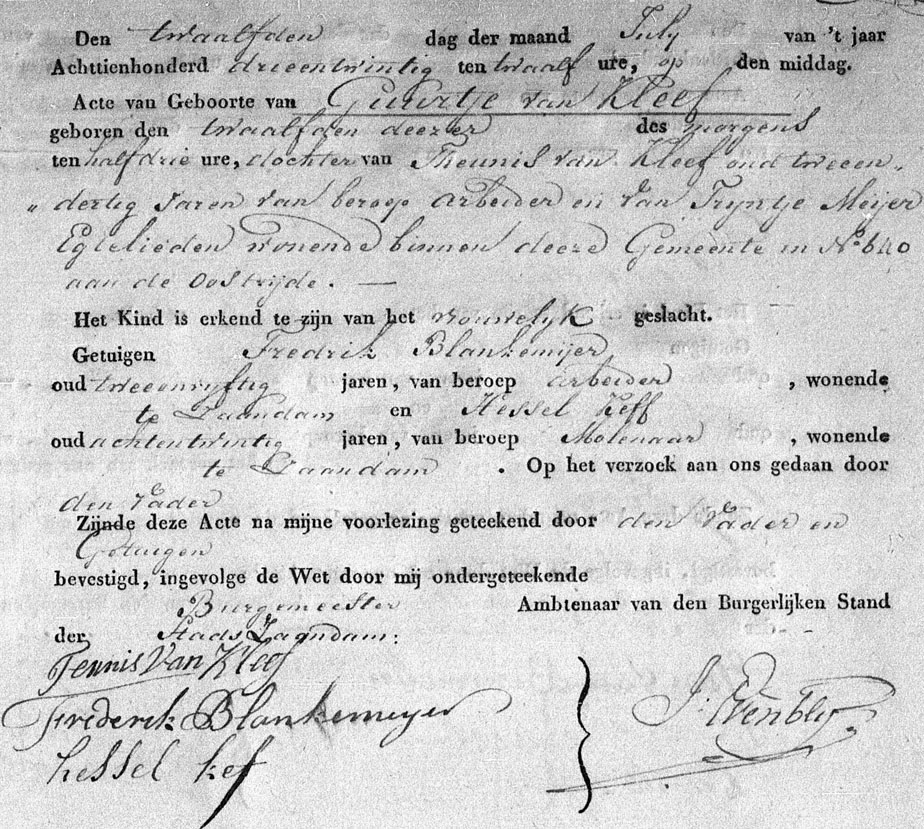 Den twaalfden dag der maand July van 't jaar
Achttienhonderd drieentwintig ten twaalf ure, op den middag.
Acte van Geboorte van Guurtje van Kleef
geboren den twaalfden deezer des morgens
ten half drie ure, dochter van Theunis van Kleef oud tweeen„
„dertig Jaren van beroep arbeider en van Tryntje Meijer
Egtelieden wonende binnen deeze Gemeente in No 640
aan de Oostzijde. —
Het Kind is erkend te zijn van het vrouwelyk geslacht.
Getuigen Fredrik Blankemijer
oud tweeenvyftig jaren, van beroep arbeider, wonende
te Zaandam en Hessel Keff
oud achtentwintig jaren, van beroep Molenaar, wonende
te Zaandam. Op het verzoek aan ons gedaan door
den Vader
Zijnde deze Acte na mijne voorlezing geteekend door den Vader en
Getuigen
bevestigd, ingevolge de Wet door mij ondergeteekende
Burgemeester Ambtenaar van den Burgerlijken Stand
der Stads Zaandam:
Teunis Van Kleef
Frederik Blankemeyer
hessel kef